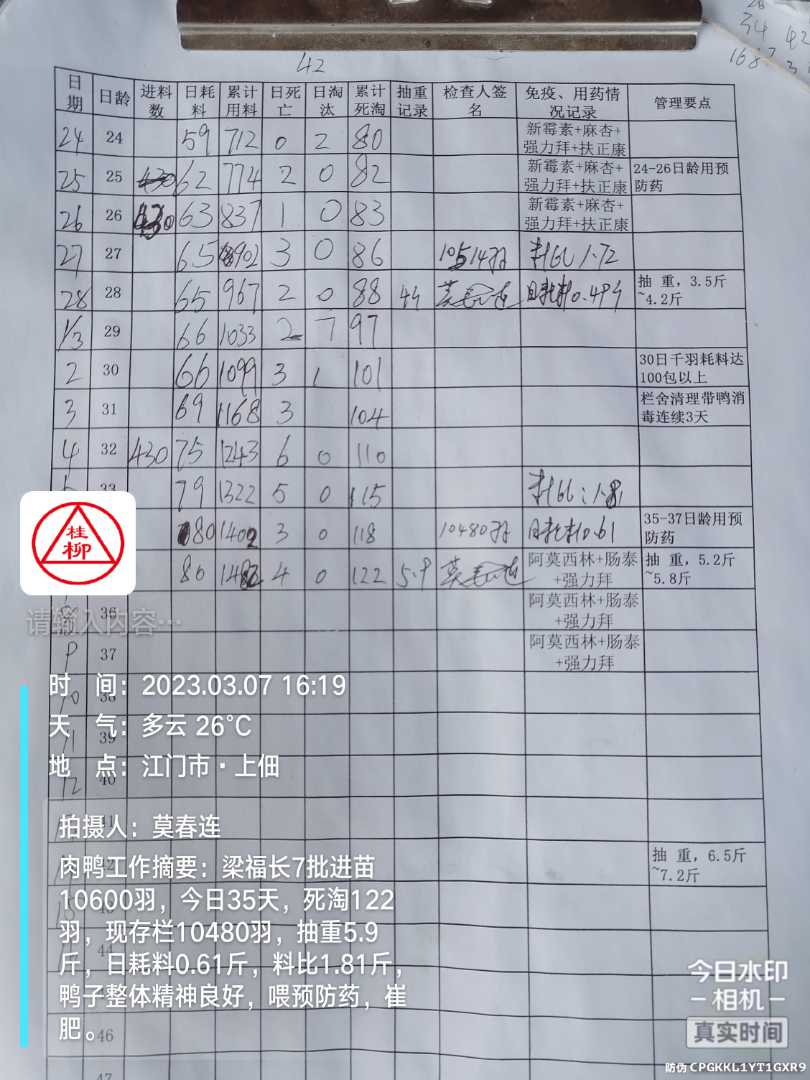 42
日期 日龄 进料数 日耗料 累计用料 日死亡 日淘汰 累计死淘 抽重记录 检查人签名 免疫、用药情况记录 管理要点
24 24 59 712 0 2 80 新霉素+麻杏+强力拜+扶正康
25 25 62 774 2 0 82 新霉素+麻杏+强力拜+扶正康 24-26日龄用预防药
26 26 63 837 1 0 83 新霉素+麻杏+强力拜+扶正康
27 27 65 902 3 0 86 10514羽 料比1.72
28 28 65 967 2 0 88 日耗料0.495 抽 重，3.5斤~4.2斤
1/3 29 66 1033 2 7 97
2 30 66 1099 3 1 101 30日千羽耗料达100包以上
3 31 69 1168 3 104 栏舍清理带鸭消毒连续3天
4 32 430 75 1243 6 0 110
33 79 1322 5 0 115 料比:1.81
80 1402 3 0 118 10480羽 日耗料0.61 35-37日龄用预防药
80 1482 4 0 122 5.9 阿莫西林+肠泰+强力拜 抽 重，5.2斤~5.8斤
36 阿莫西林+肠泰+强力拜
9 37 阿莫西林+肠泰+强力拜
10 38
11 39
12 40
抽 重，6.5斤~7.2斤
44
46
47
桂柳
请输入内容…
时 间：2023.03.07 16:19
天 气：多云 26℃
地 点：江门市·上佃
拍摄人：莫春连
肉鸭工作摘要：梁福长7批进苗
10600羽，今日35天，死淘122
羽，现存栏10480羽，抽重5.9
斤，日耗料0.61斤，料比1.81斤，
鸭子整体精神良好，喂预防药，崔
肥。
今日水印
相机
真实时间
防伪 CPGKKL1YT1GXR9